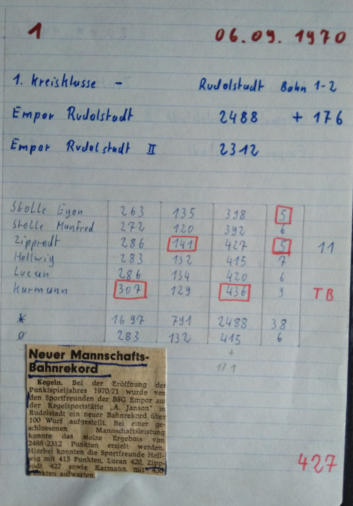 1 06.09.1970
1. Kreisklasse - Rudolstadt Bahn 1-2
Empor Rudolstadt 2488 + 176
Empor Rudolstadt II 2312
Stolle Egon 263 135 398 5
Stolle Manfred 272 120 392 6
Zipprodt 286 141 427 5 11
Hellwig 283 132 415 7
Lucan 286 134 420 6
Kurmann 307 129 436 9 TB
1697 791 2488 38
Ø 283 132 415 6
+
171
Neuer Mannschafts-
Bahnrekord
Kegeln. Bei der Eröffnung der
Punktspieljahres 1970/71 wurde von
den Sportfreunden der BSG Empor auf
der Kegelsportstätte „A. Janson" in
Rudolstadt ein neuer Bahnrekord über
100 Wurf aufgestellt. Bei einer ge-
schlossenen Mannschaftsleistung
konnte das Ergebnis von
2488:2312 Punkten erzielt werden.
Hierbei konnten die Sportfreunde Hell-
wig mit 415 Punkten, Lucan 420, Zipp-
rodt 427 sowie Karmann mit 436
Punkten aufwarten.
427